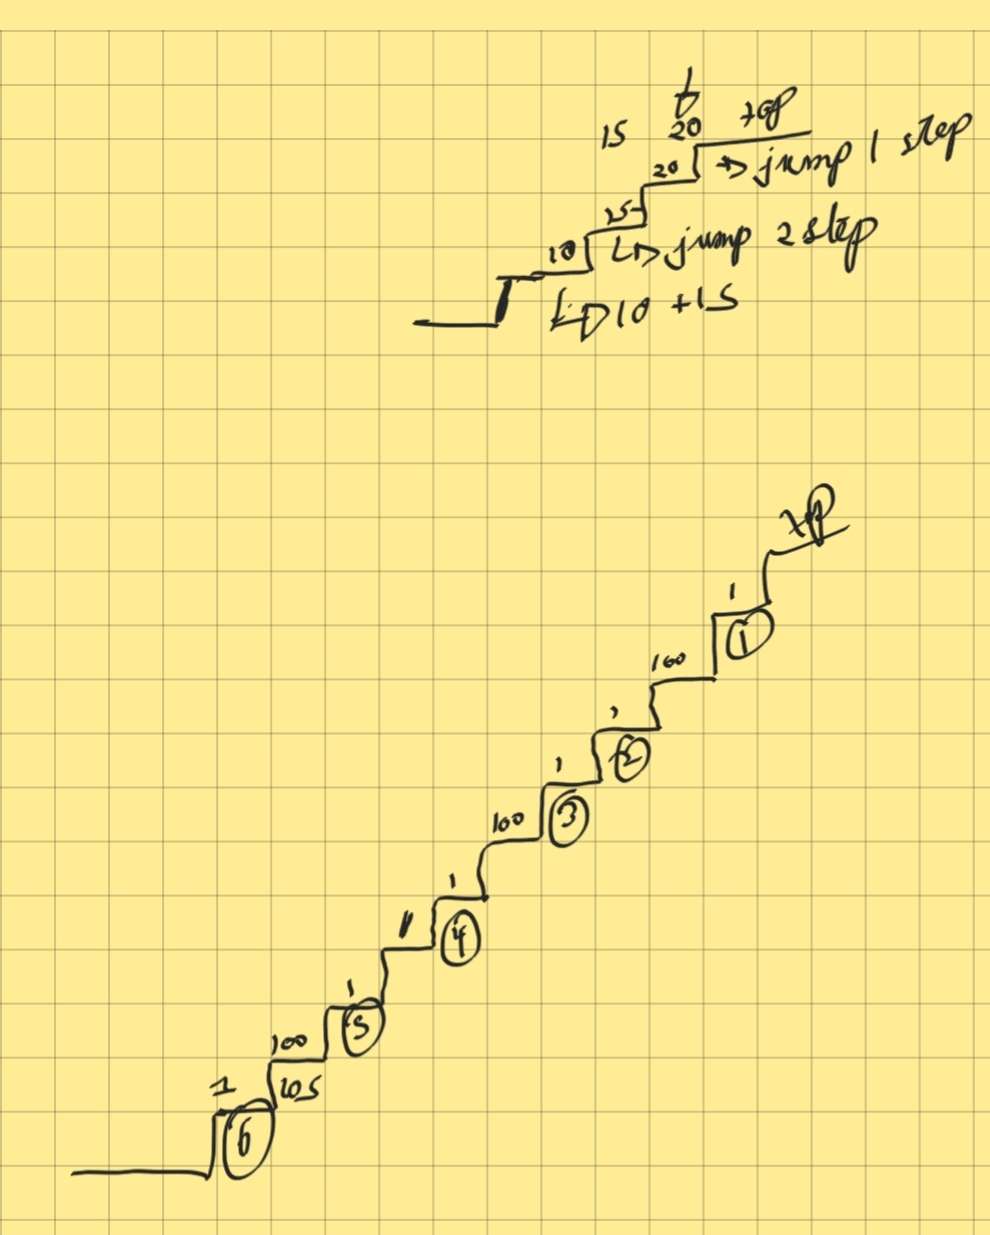 15 20 top
20 → jump 1 step
15 ↳ jump 2 step
10
↳ 10 + 15
top
1
①
100
1
②
1
③
100
1
④
1
1
⑤
100
105
1
⑥